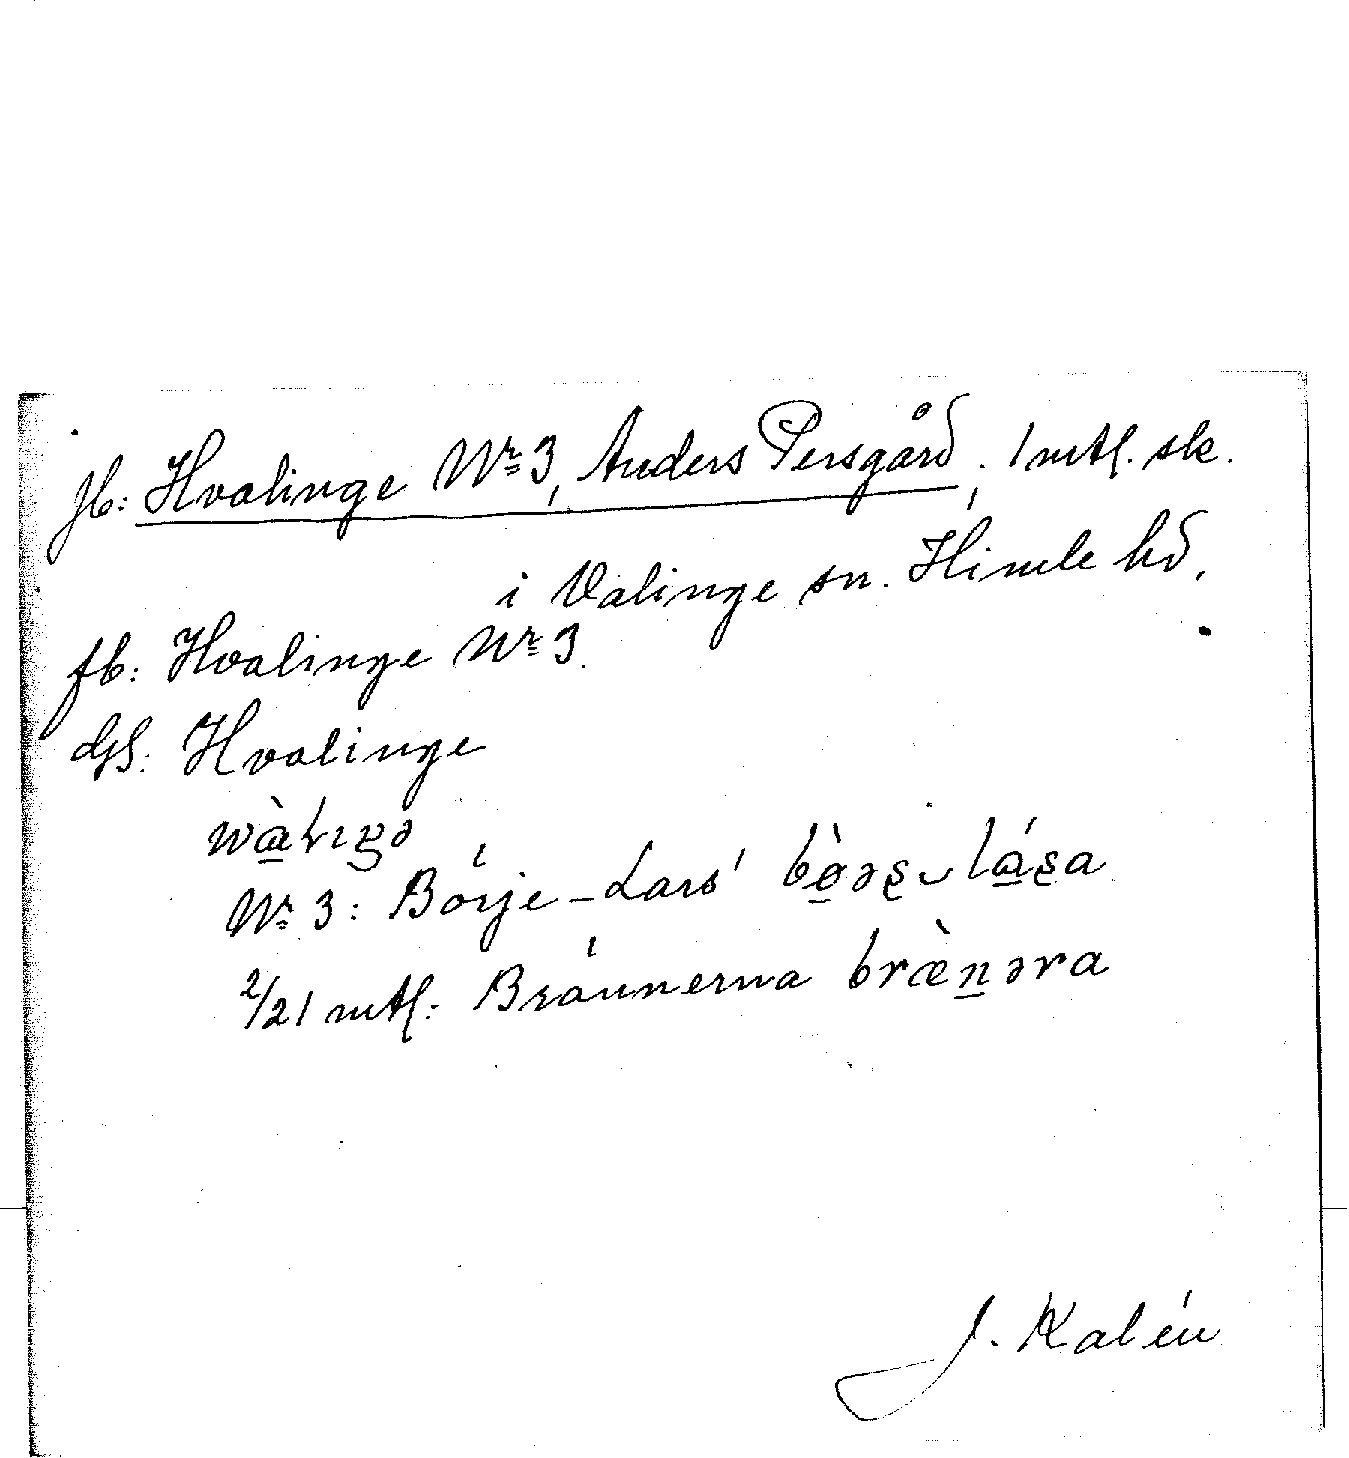 jb: Hvalinge Nr 3, Anders Persgård, 1 mtl. sk.
i Valinge sn. Himle hd.
fb: Hvalinge Nr 3.
dgl: Hvalinge
Nr 3: Börje-Lars'
2/21 mtl: Brännerna bræ̀n̲əra
J. Kalén